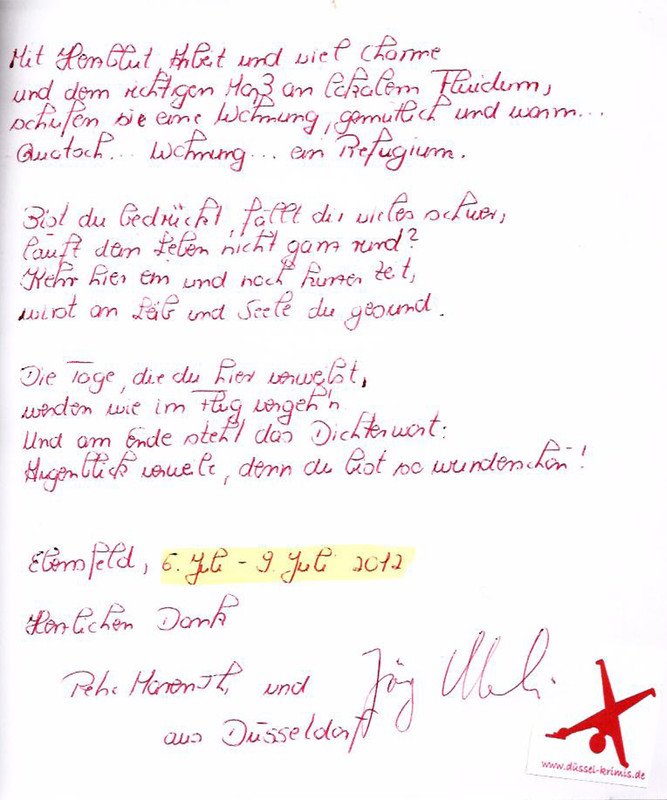 Mit Herzblut, Arbeit und viel Charme
und dem richtigen Maß an lokalem Fluidum,
schufen sie eine Wohnung, gemütlich und warm...
Quatsch... Wohnung... ein Refugium.
Bist du bedrückt, fällt dir vieles schwer,
läuft dein Leben nicht ganz rund?
Kehr hier ein und nach kurzer Zeit,
wirst an Leib und Seele du gesund.
Die Tage, die du hier verweilst,
werden wie im Flug vergeh'n
Und am Ende steht das Dichterwort:
Augenblick verweile, denn du bist so wunderschön!
6. Juli - 9. Juli 2012
Herzlichen Dank
und Jörg
aus Düsseldorf
www.düssel-krimis.de